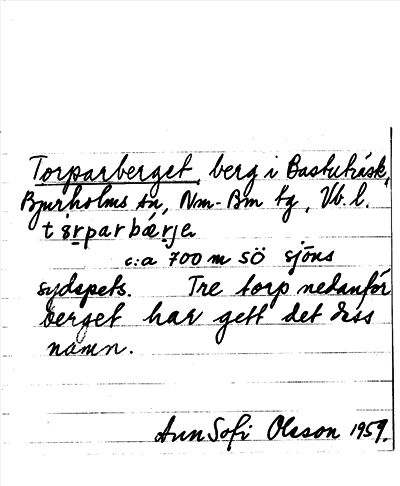 Torparberget, berg i Bastuträsk,
Bjurholms sn, Nm-Bm tg, Vb. l.
c:a 700 m sö sjöns
sydspets. Tre torp nedanför
berget har gett det dess
namn.
Ann Sofi Olsson 1959.